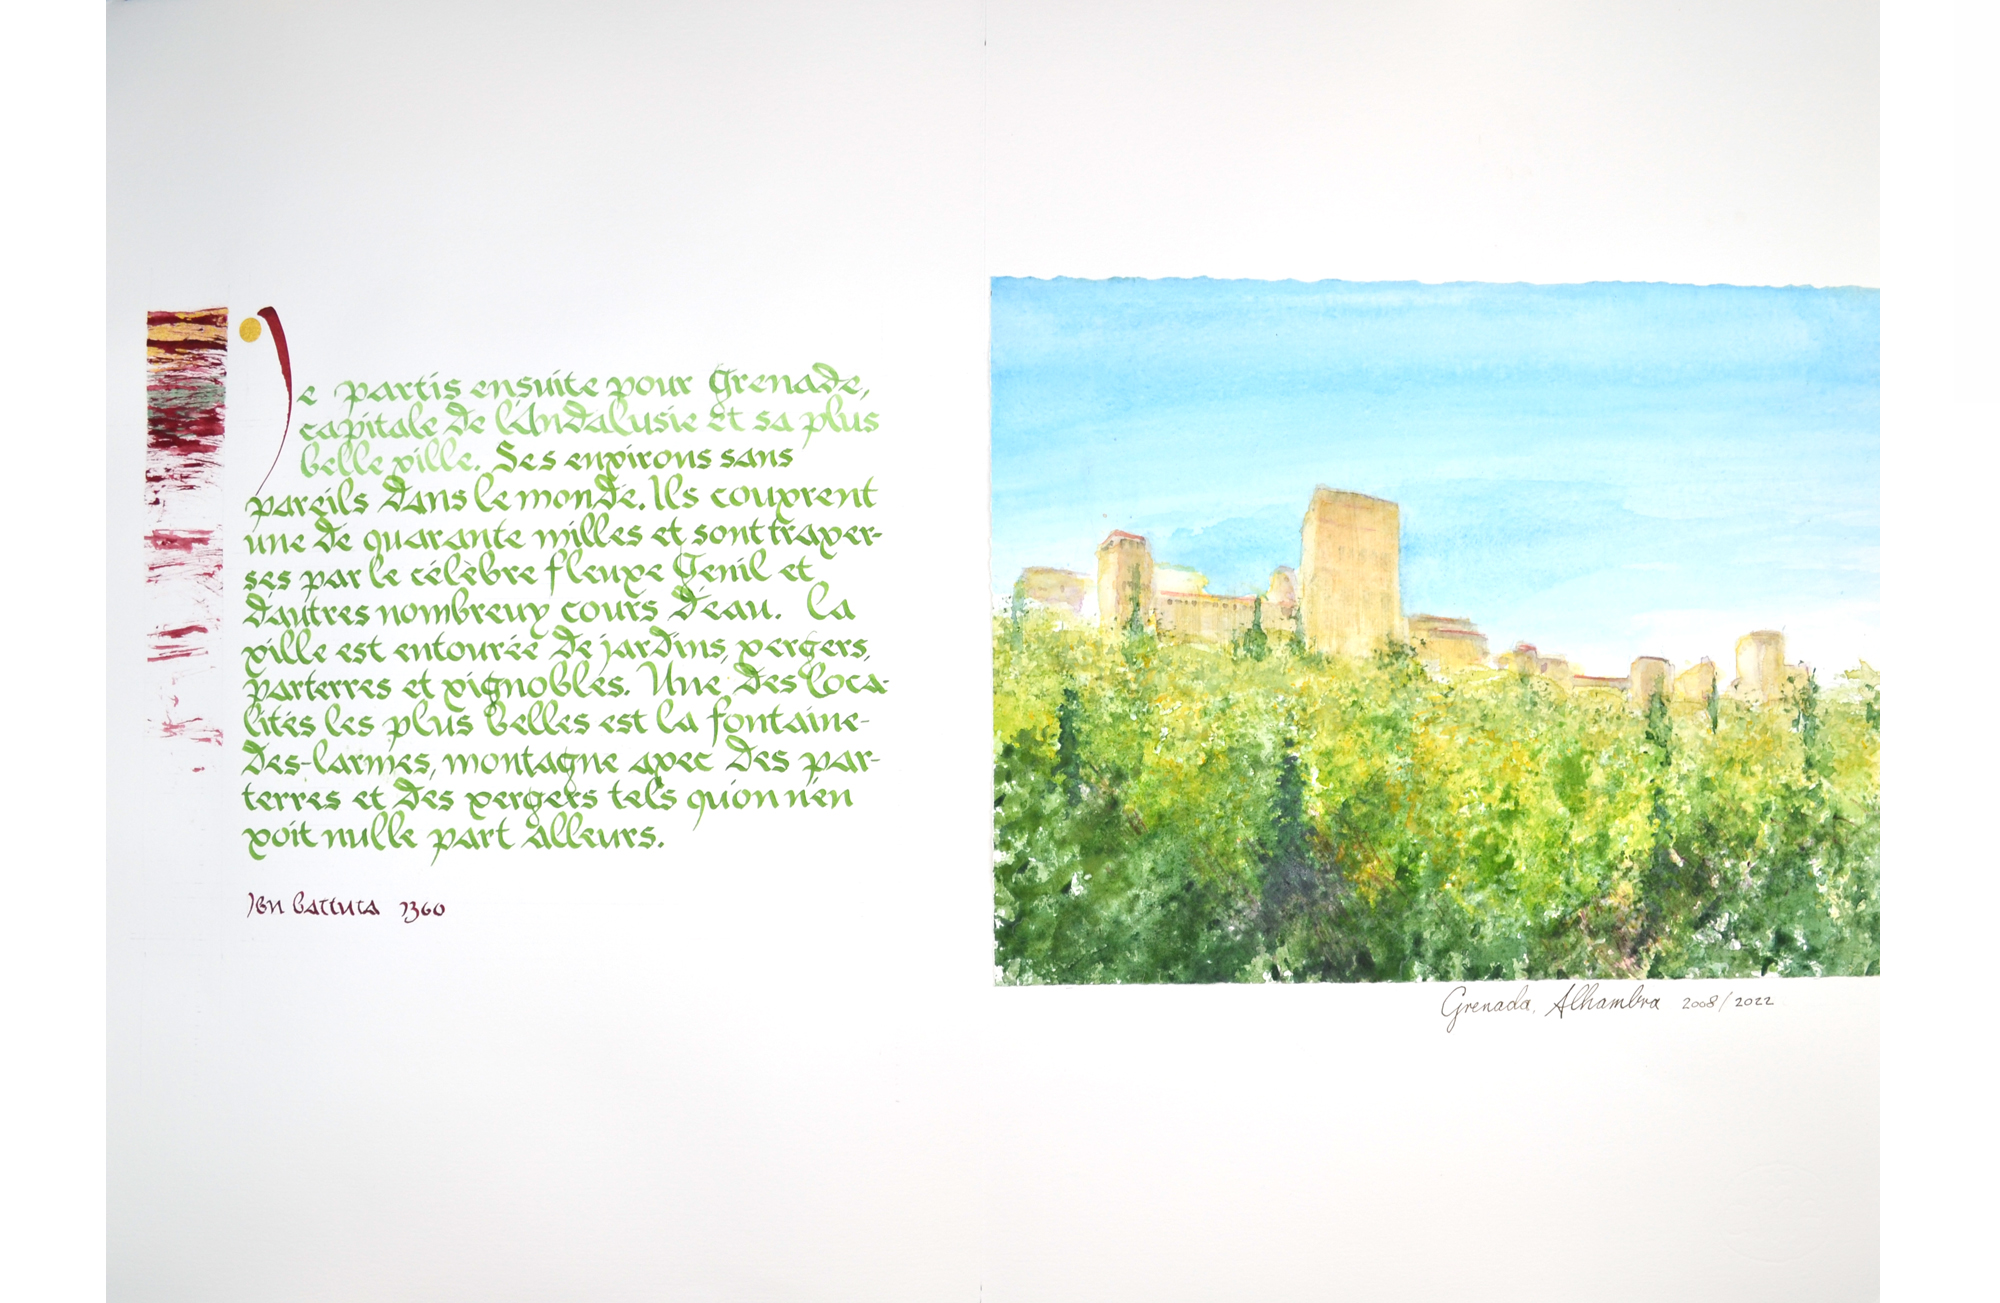 Je partis ensuite pour Grenade,
capitale de l'Andalusie et sa plus
belle ville. Ses environs sans
pareils dans le monde. Ils couvrent
une de quarante milles et sont traver-
ses par le célèbre fleuve Genil et
d'autres nombreux cours d'eau. La
ville est entourée de jardins, vergers,
parterres et vignobles. Une des loca-
lités les plus belles est la fontaine-
des-larmes, montagne avec des par-
terres et des vergers tels qu'on n'en
voit nulle part alleurs.
Ibn Battuta 1360
Grenada, Alhambra 2008/2022